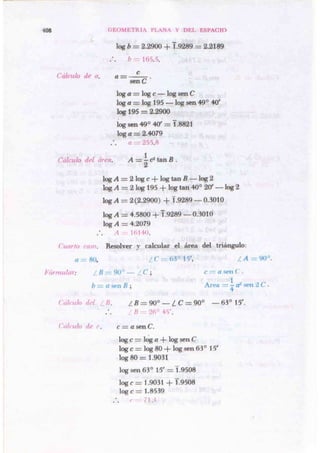 408 GEOMETRIA PLANA Y DEL ESPACIO
log b = 2.2900 + 1̄.9289 = 2.2189
∴ b = 165,5.
Cálculo de a, a = c / sen C .
log a = log c — log sen C
log a = log 195 — log sen 49° 40'
log 195 = 2.2900
log sen 49° 40' = 1̄.8821
log a = 2.4079
∴ a = 255,8
Cálculo del área. A = 1/2 c² tan B .
log A = 2 log c + log tan B — log 2
log A = 2 log 195 + log tan 40° 20' — log 2
log A = 2 (2.2900) + 1̄.9289 — 0.3010
log A = 4.5800 + 1̄.9289 — 0.3010
log A = 4.2079
∴ A = 16140.
Cuarto caso. Resolver y calcular el área del triángulo:
a = 80, ∠ C = 63° 15', ∠ A = 90°.
Fórmulas: ∠ B = 90° — ∠ C ; c = a sen C .
b = a sen B ; Area = 1/4 a² sen 2 C .
Cálculo del ∠ B. ∠ B = 90° — ∠ C = 90° — 63° 15'.
∴ ∠ B = 26° 45'.
Cálculo de c. c = a sen C.
log c = log a + log sen C
log c = log 80 + log sen 63° 15'
log 80 = 1.9031
log sen 63° 15' = 1̄.9508
log c = 1.9031 + 1̄.9508
log c = 1.8539
∴ c = 71,4